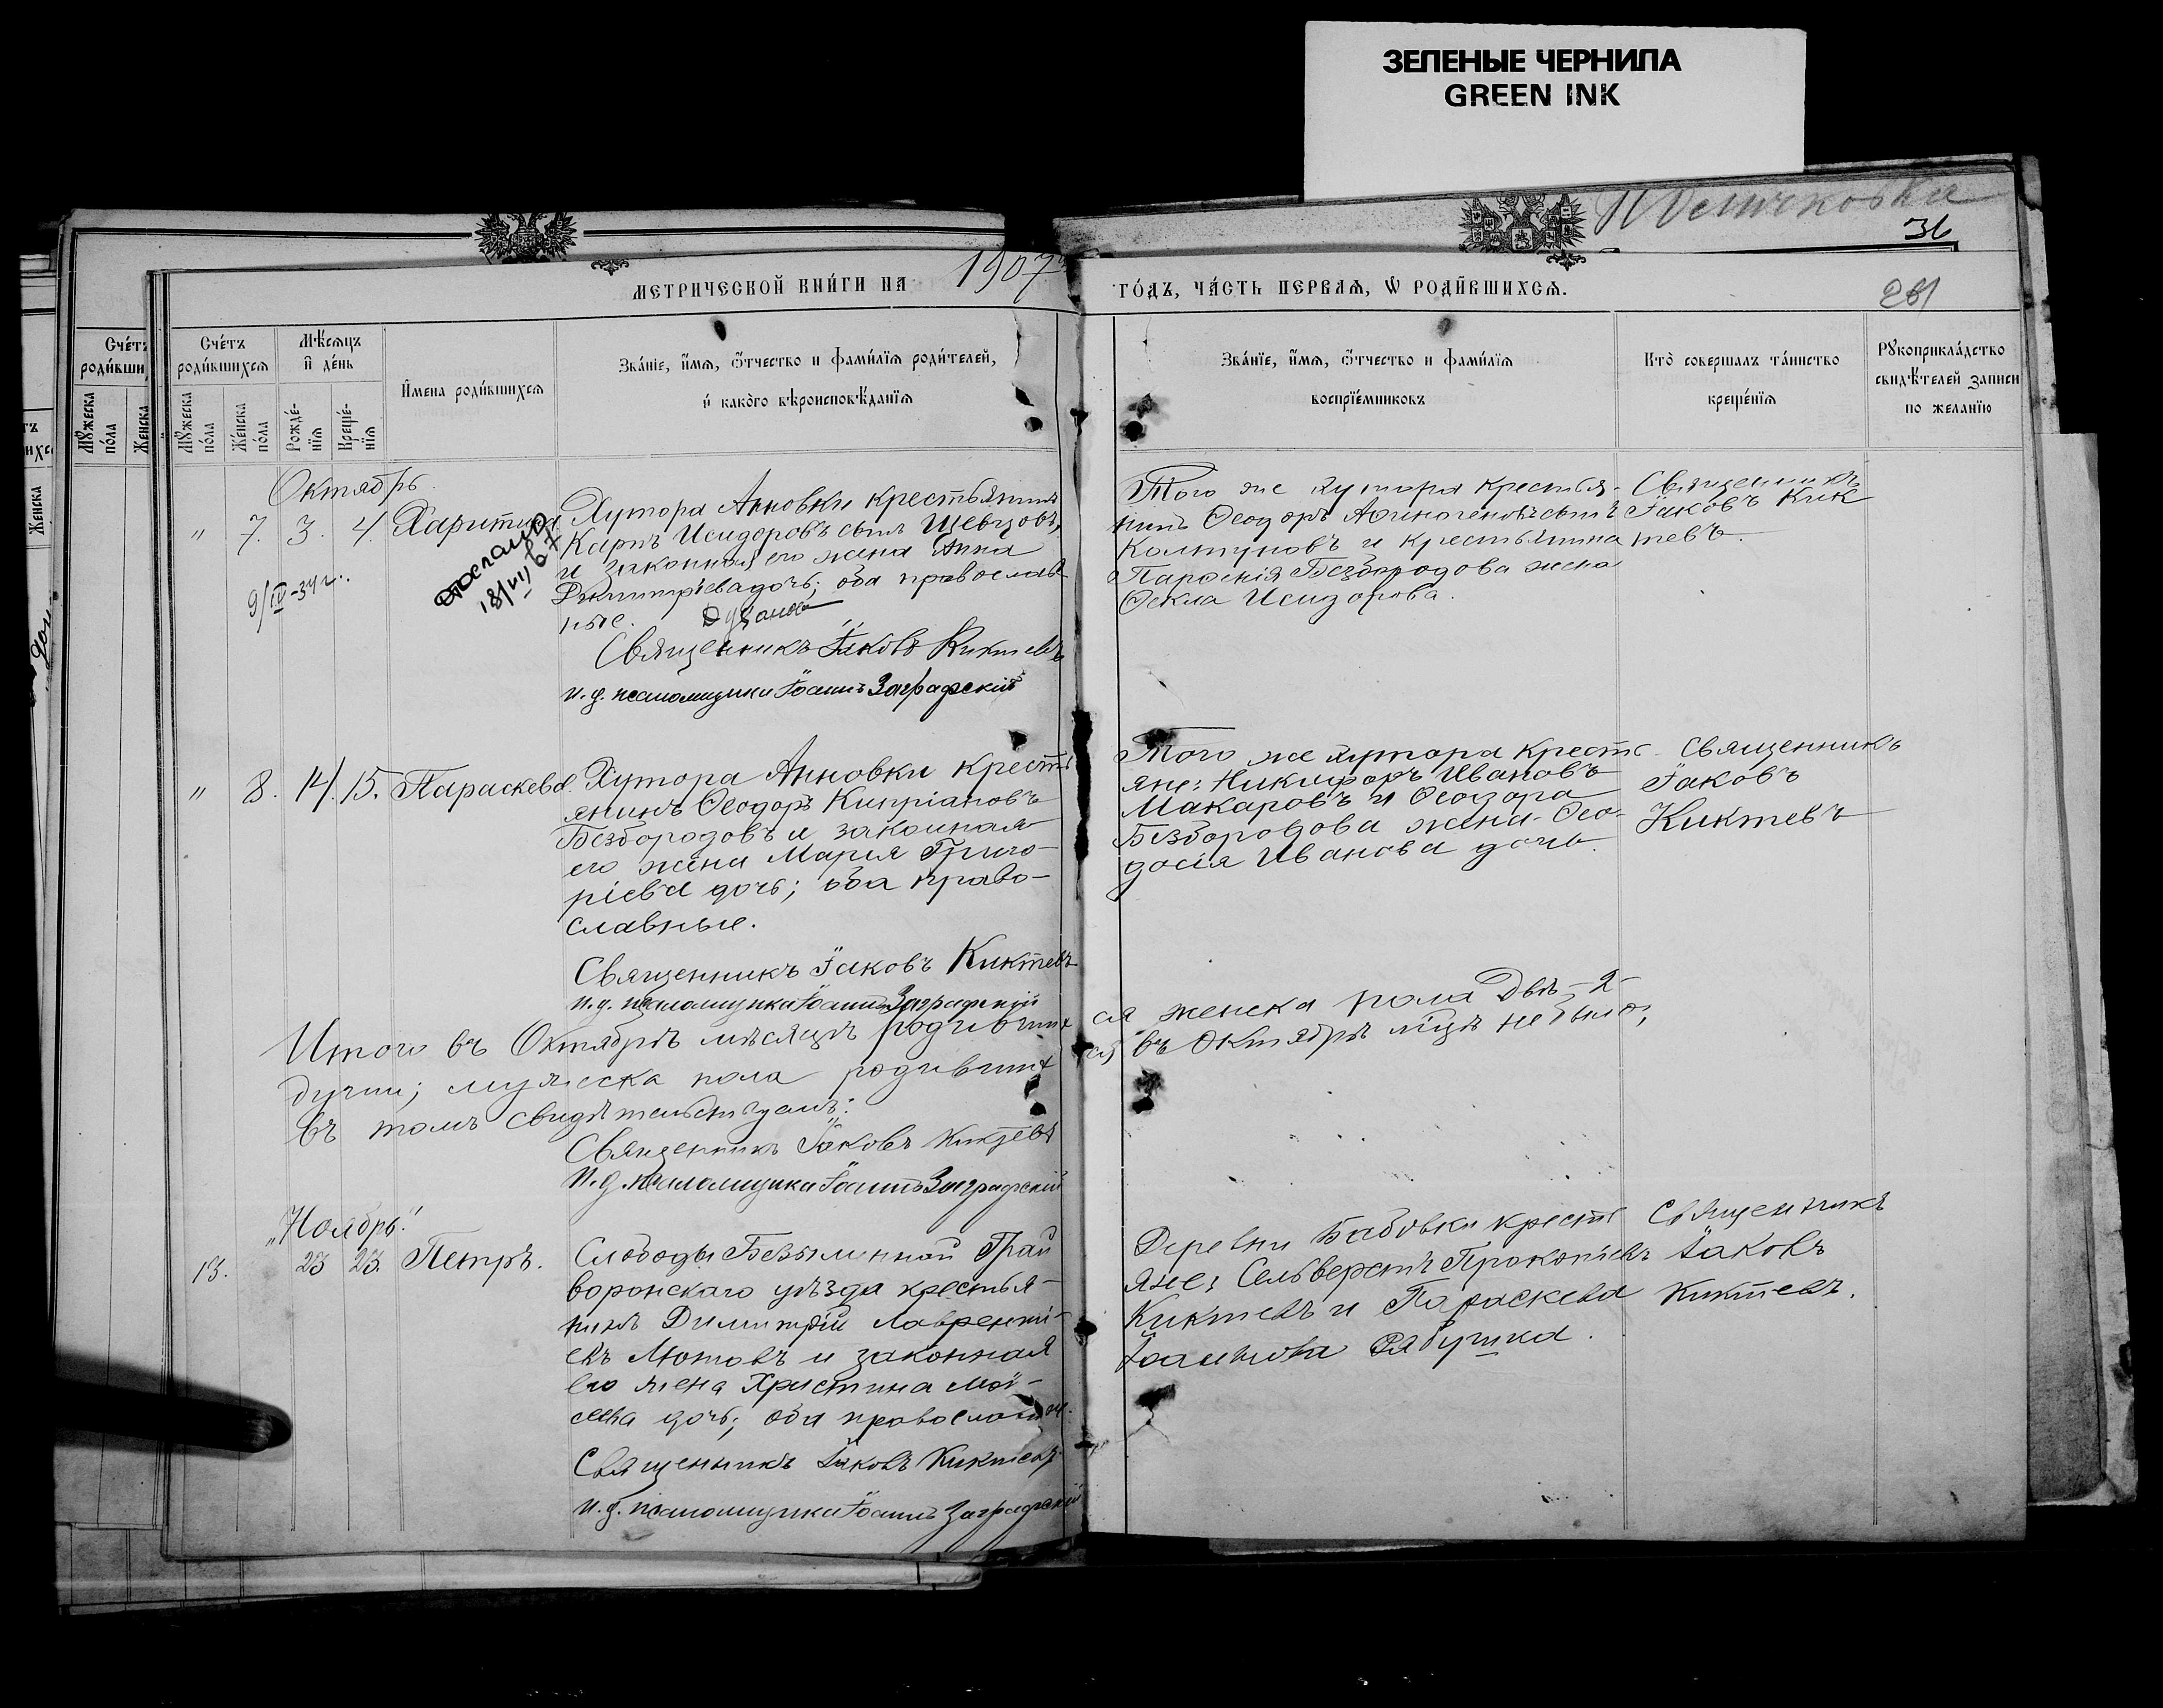 ЗЕЛЕНЫЕ ЧЕРНИЛА
GREEN INK
36
МЕТРИЧЕСКОЙ КНИ́ГИ НА 1907
ГО́ДЪ, ЧА́СТЬ ПЕРВАѦ, Ѡ РОДИ́ВШИХСѦ.
281
Сче́тъ роди́вшихсѧ
Мѣсяцъ и де́нь
Мꙋжеска по́ла
Же́нска по́ла
Рожде́нїѧ
Креще́нїѧ
И҆мена роди́вшихсѧ
Зва́нїе, и҆́мѧ, ѻ҆́тчество и фами́лїѧ роди́телей,
и҆ како́го вѣроисповѣ́данїѧ
Зва́нїе, и҆́мѧ, ѻ҆́тчество и фами́лїѧ
воспрїе́мниковъ
Кто̀ совершалъ та́инство
креще́нїѧ
Рꙋкоприкла́дство
свидѣ́телей записи
по жела́нїю
Октябрь.
" 7. 3. 4. Харитина
9/IV-34 г.
18/VII 67
Хутора Анновки крестьянинъ
Карпъ Исидоровъ сынъ Шевцовъ,
и законная его жена Анна
Димитріева дочь; оба православ
ные.
Священникъ Іаковъ Киктевъ
и. д. псаломщика Іоаннъ Заграфскій
Того же хутора крестья-
нинъ Ѳеодоръ Аѳиногеновъ сынъ
Колтуновъ и крестьянина
Парѳенія Безбородова жена
Ѳекла Исидорова.
Священникъ
Іаковъ Кик
тевъ.
" 8. 14. 15. Параскева.
Хутора Анновки кресть
янинъ Ѳеодоръ Кипріановъ
Безбородовъ и законная
его жена Марія Григо-
ріева дочь; оба право-
славные.
Священникъ Іаковъ Киктевъ
и. д. псаломщика Іоаннъ Заграфскій
Того же хутора кресть
яне: Никифоръ Ивановъ
Макаровъ и Ѳеодора
Безбородова жена Ѳео-
досія Иванова дочь.
Священникъ
Іаковъ
Киктевъ
Итого въ Октябрѣ мѣсяцѣ родивших ся женска пола Двѣ -2-
души; мужеска пола родивших ся въ Октябрѣ м-цѣ не было;
въ томъ свидѣтельствуемъ:
Священникъ Іаковъ Киктевъ
И. д. псаломщика Іоаннъ Заграфскій
"Ноябрь!
13. 23 23. Петръ.
Слободы Безыменной Грай
воронскаго уѣзда крестья-
нинъ Димитрій Лаврентi-
евъ Мотовъ и законная
его жена Христина Мои-
сеева дочь; оба православные.
Священникъ Іаковъ Киктевъ
и. д. псаломщика Іоаннъ Заграфскій
Деревни Бабовки кресть
яне: Сельверстъ Прокопіевъ
Киктевъ и Параскева
Іоаннова Рябушка.
Священникъ
Іаковъ
Киктевъ.